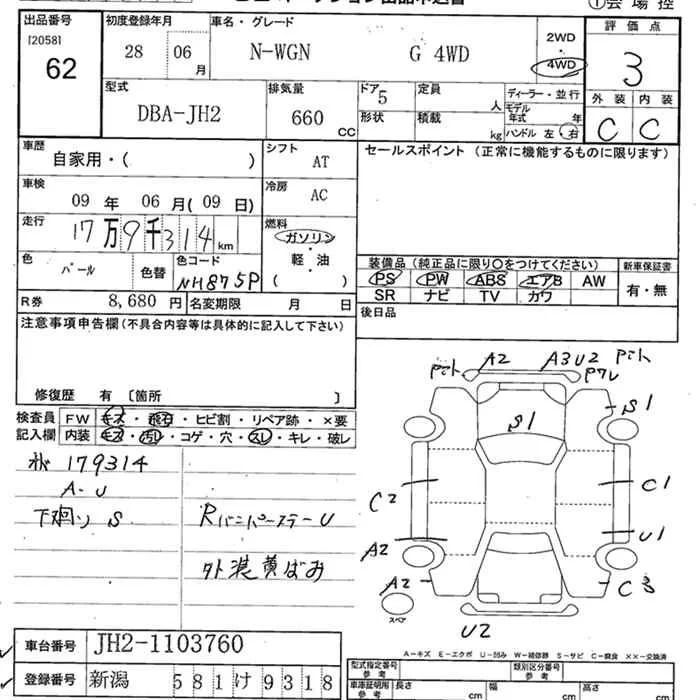 ①会場控
出品番号 [2058] 62
初度登録年月 28 06 月
車名・グレード N-WGN G 4WD
2WD
・
4WD
評価点 3
外装 C 内装 C
型式 DBA-JH2
排気量 660 CC
ドア 5
形状
定員 人
積載 kg
ディーラー・並行
モデル年式 年
ハンドル 左・右
車歴 自家用・( )
シフト AT
車検 09 年 06 月(09 日)
冷房 AC
走行 17万9千314 km
燃料 ガソリン
・
軽・油
( )
色 パール 色替
色コード NH875P
R券 8,680 円 名変期限 月 日
セールスポイント (正常に機能するものに限ります)
装備品(純正品に限り〇をつけてください)
PS PW ABS エアB AW
SR ナビ TV カワ
新車保証書
有・無
後日品
注意事項申告欄(不具合内容等は具体的に記入して下さい)
修復歴 有 〔箇所 〕
検査員記入欄
FW キズ・飛石・ヒビ割・リペア跡・×要
内装 キズ・汚レ・コゲ・穴・スレ・キレ・破レ
179314
A-U
下廻り S
外装黄ばみ
A2 A3 U2
S1
S1
C2
C1
U1
A2
A2
C3
スペア
U2
A-キズ E-エクボ U-凹み W-補修跡 S-サビ C-腐食 ××-交換済
車台番号 JH2-1103760
登録番号 新潟 581 け 9318
型式指定番号 参考
類別区分番号 参考
車庫証明用 参考 長さ cm 幅 cm 高さ cm